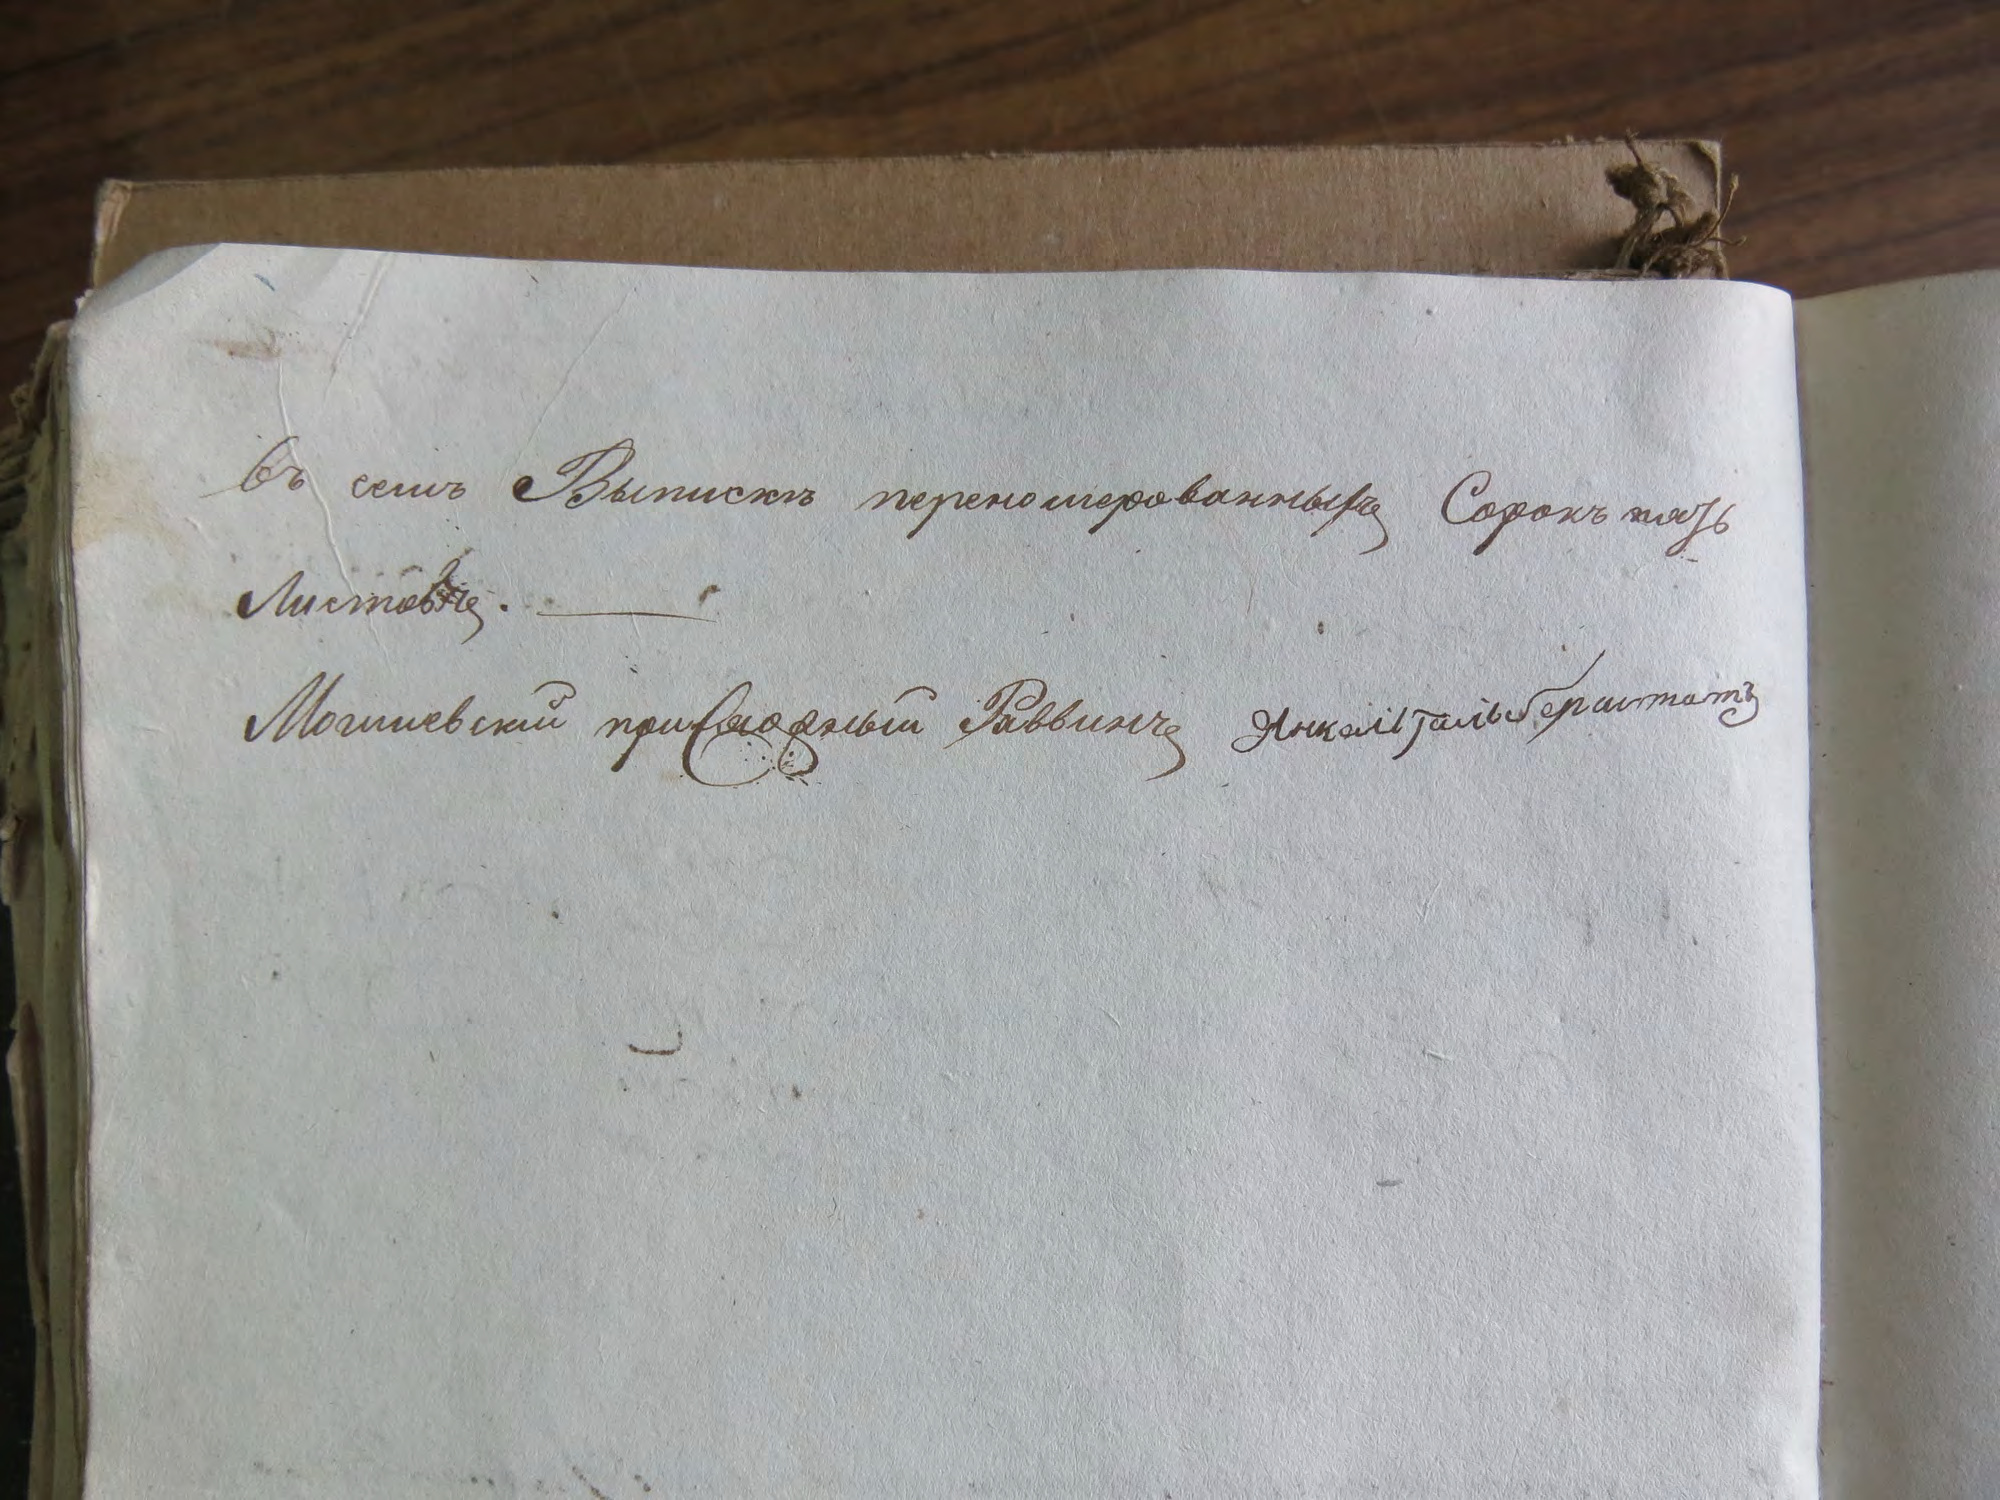 въ семъ Выпискѣ переномерованныхъ Сорокъ пять
Листовъ.
Могилевскій присяжный Раввинъ Янкель Гальберштатъ